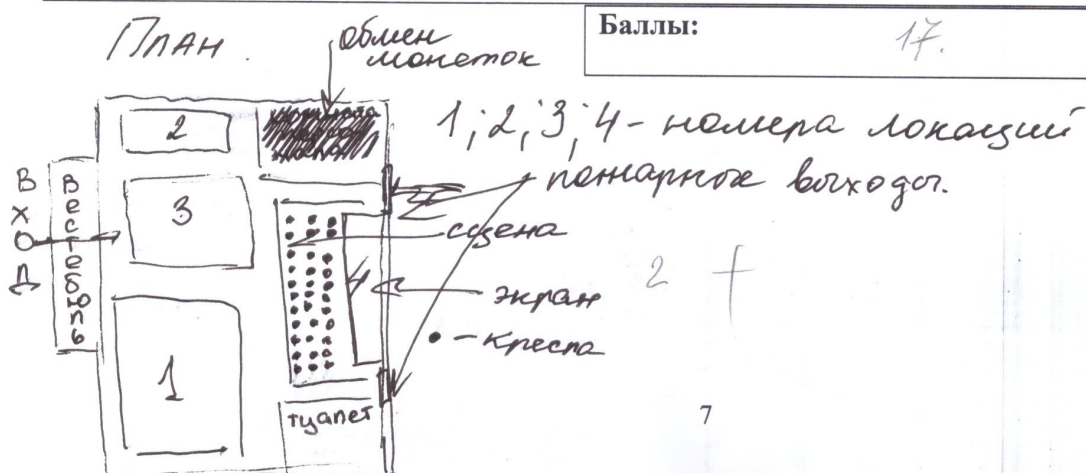 План.
обмен
монеток
Баллы:
17.
1; 2; 3; 4 - номера локаций
пожарные выходы.
2
3
1
4
вход
вестебюль
сцена
экран
• - кресла
туалет
2 +
7